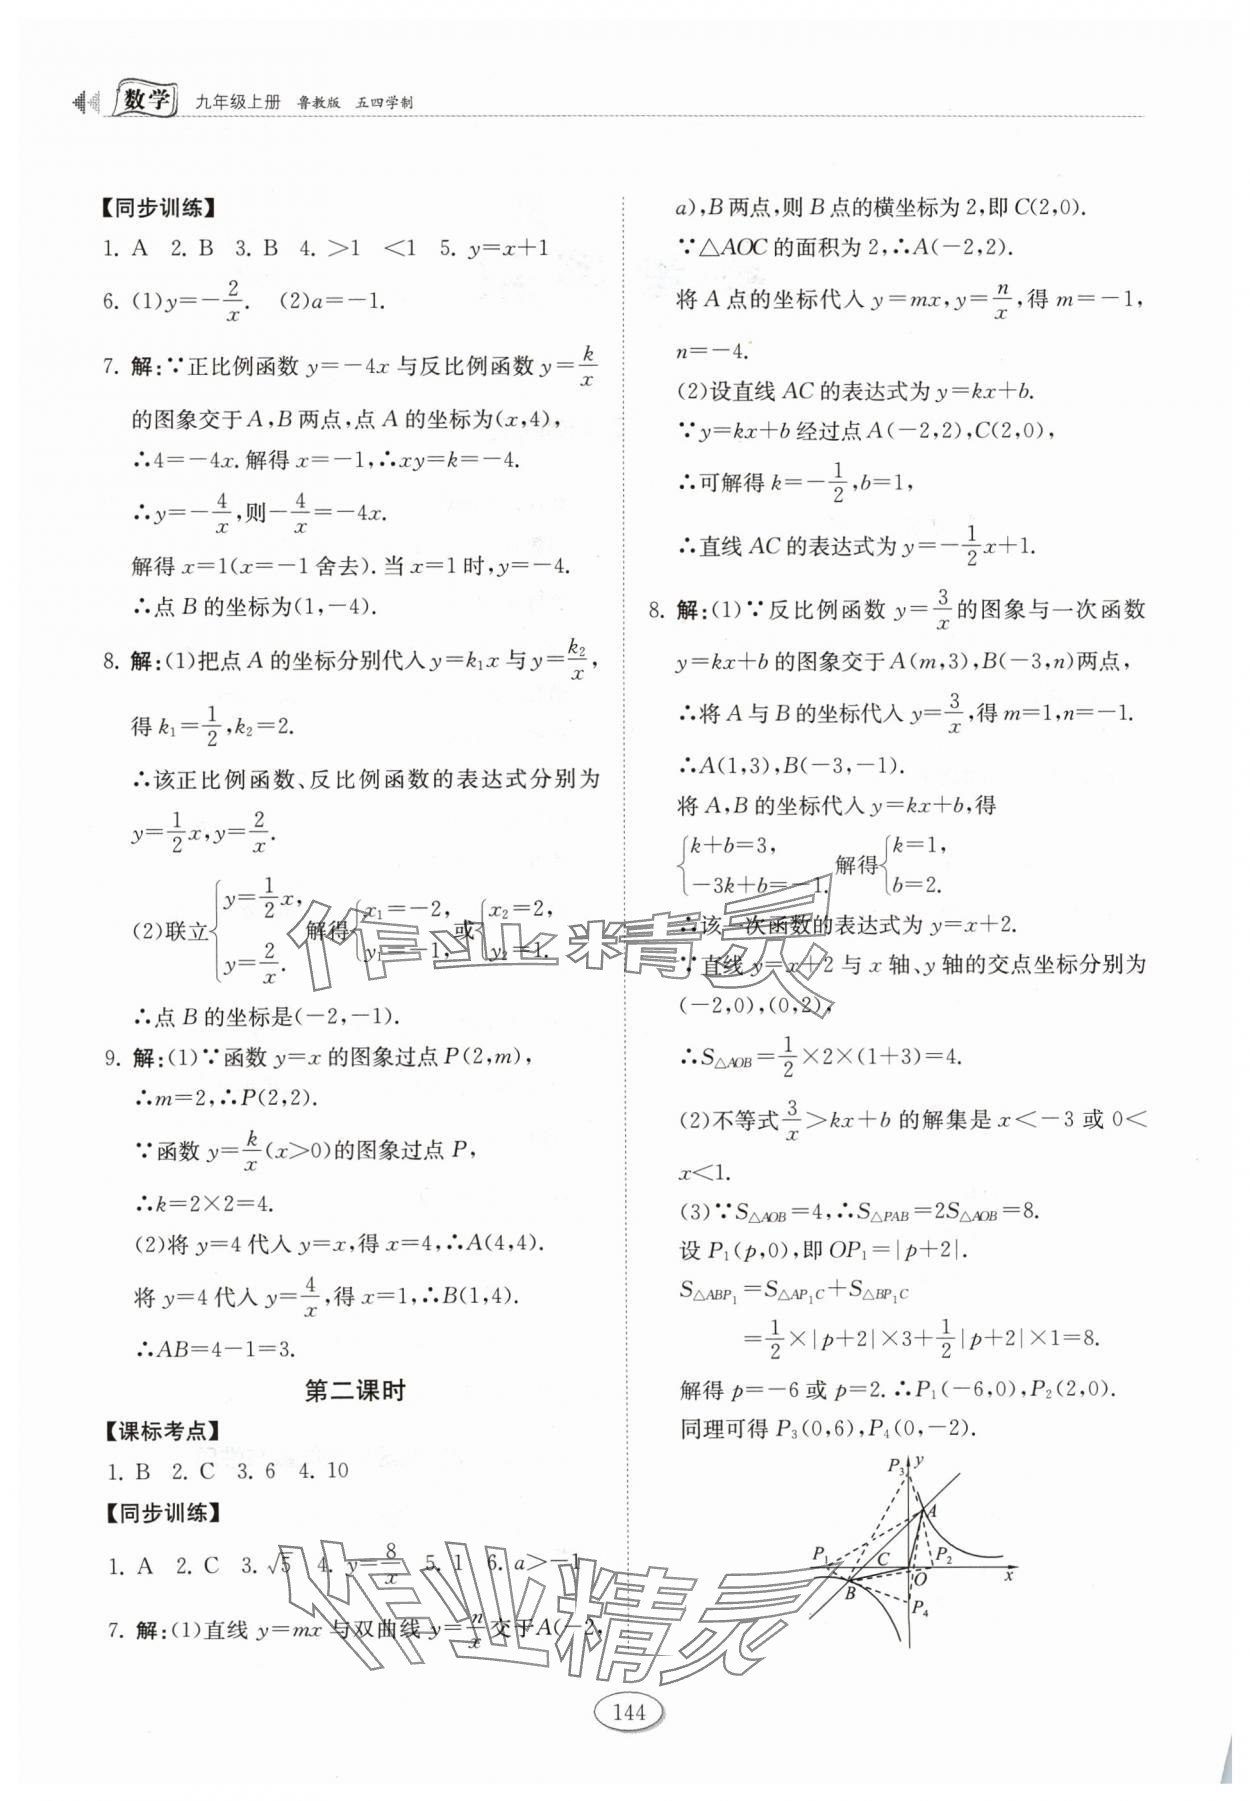 数学 九年级上册 鲁教版 五四学制
【同步训练】
1. A 2. B 3. B 4. >1 <1 5. y=x+1
6. (1)y=-2/x. (2)a=-1.
7. 解:∵正比例函数 y=-4x 与反比例函数 y=k/x
的图象交于 A,B 两点,点 A 的坐标为(x,4),
∴4=-4x. 解得 x=-1,∴xy=k=-4.
∴y=-4/x,则-4/x=-4x.
解得 x=1(x=-1 舍去). 当 x=1 时,y=-4.
∴点 B 的坐标为(1,-4).
8. 解:(1)把点 A 的坐标分别代入 y=k₁x 与 y=k₂/x,
得 k₁=1/2,k₂=2.
∴该正比例函数、反比例函数的表达式分别为
y=1/2x,y=2/x.
(2)联立{y=1/2x, y=2/x. 解得{x₁=-2, y₁=-1, 或{x₂=2, y₂=1.
∴点 B 的坐标是(-2,-1).
9. 解:(1)∵函数 y=x 的图象过点 P(2,m),
∴m=2,∴P(2,2).
∵函数 y=k/x(x>0)的图象过点 P,
∴k=2×2=4.
(2)将 y=4 代入 y=x,得 x=4,∴A(4,4).
将 y=4 代入 y=4/x,得 x=1,∴B(1,4).
∴AB=4-1=3.
第二课时
【课标考点】
1. B 2. C 3. 6 4. 10
【同步训练】
1. A 2. C 3. √5 4. y=8/x 5. 1 6. a>-1
7. 解:(1)直线 y=mx 与双曲线 y=n/x 交于 A(-2,
a),B 两点,则 B 点的横坐标为 2,即 C(2,0).
∵△AOC 的面积为 2,∴A(-2,2).
将 A 点的坐标代入 y=mx,y=n/x,得 m=-1,
n=-4.
(2)设直线 AC 的表达式为 y=kx+b.
∵y=kx+b 经过点 A(-2,2),C(2,0),
∴可解得 k=-1/2,b=1,
∴直线 AC 的表达式为 y=-1/2x+1.
8. 解:(1)∵反比例函数 y=3/x 的图象与一次函数
y=kx+b 的图象交于 A(m,3),B(-3,n)两点,
∴将 A 与 B 的坐标代入 y=3/x,得 m=1,n=-1.
∴A(1,3),B(-3,-1).
将 A,B 的坐标代入 y=kx+b,得
{k+b=3, -3k+b=-1. 解得{k=1, b=2.
∴该一次函数的表达式为 y=x+2.
∵直线 y=x+2 与 x 轴、y 轴的交点坐标分别为
(-2,0),(0,2),
∴S△AOB=1/2×2×(1+3)=4.
(2)不等式 3/x>kx+b 的解集是 x<-3 或 0<
x<1.
(3)∵S△AOB=4,∴S△PAB=2S△AOB=8.
设 P₁(p,0),即 OP₁=|p+2|.
S△ABP₁=S△AP₁C+S△BP₁C
=1/2×|p+2|×3+1/2|p+2|×1=8.
解得 p=-6 或 p=2. ∴P₁(-6,0),P₂(2,0).
同理可得 P₃(0,6),P₄(0,-2).
P₃ y
A
P₁ C P₂
B O x
P₄
作业精灵
作业精灵
144